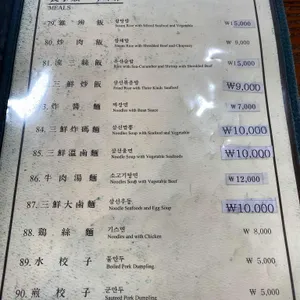 MEALS
79. 雜辦飯 잡탕밥 ₩15,000
Steam Rice with Mixed Seafood and Vegetable
80. 炒肉飯 잡채밥 ₩ 8,000
Steam Rice with Shredded Beef and Chapssuy
81. 溜三絲飯 유산슬밥 ₩15,000
Rice with Sea Cucumber and Shrimp with Shredded Beef
三鮮炒飯 삼선볶음밥 ₩9,000
Fried Rice with Three Kinds Seafood
3. 炸醬麵 짜장면 ₩7,000
Noodles with Bean Sauce
84. 三鮮炒碼麵 삼선짬뽕 ₩10,000
Noodles Soup with Seafood and Vegetable
85. 三鮮溫鹵麵 삼선울면 ₩10,000
Noodle Soup with Vegetable Seafoods
86. 牛肉湯麵 소고기탕면 ₩12,000
Noodles Soup with Vegetable Beef
87. 三鮮大鹵麵 삼선우동 ₩10,000
Noodle Seafoods and Egg Soup
88. 鷄絲麵 기스면 ₩ 8,000
Noodles and with Chicken
89. 水餃子 물만두 ₩ 5,000
Boiled Pork Dumpling
90. 煎餃子 군만두 ₩ 5,000
Sauteed Pork Dumpling